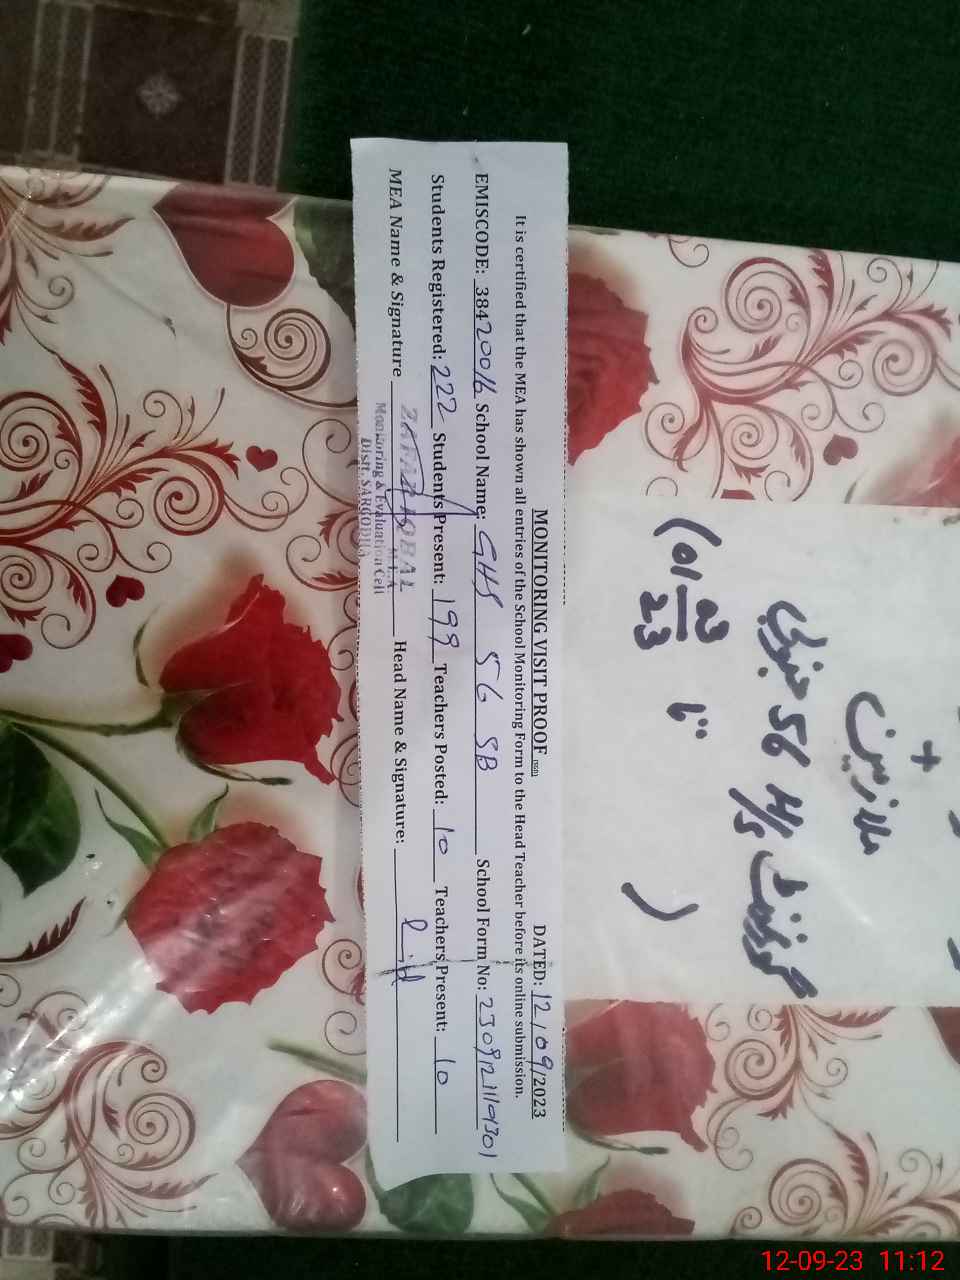 MONITORING VISIT PROOF (SGD)
DATED: 12/09/2023
It is certified that the MEA has shown all entries of the School Monitoring Form to the Head Teacher before its online submission.
EMISCODE: 38420016 School Name: GHS 56 SB School Form No:
Students Registered: 222 Students Present: 199 Teachers Posted: 10 Teachers Present: 10
MEA Name & Signature ZAFAR IQBAL Head Name & Signature:
M.E.A.
Monitoring & Evaluation Cell
Distt. SARGODHA
+
ملازمین
گورنمنٹ H/S 56 جنوبی
12-09-23 11:12